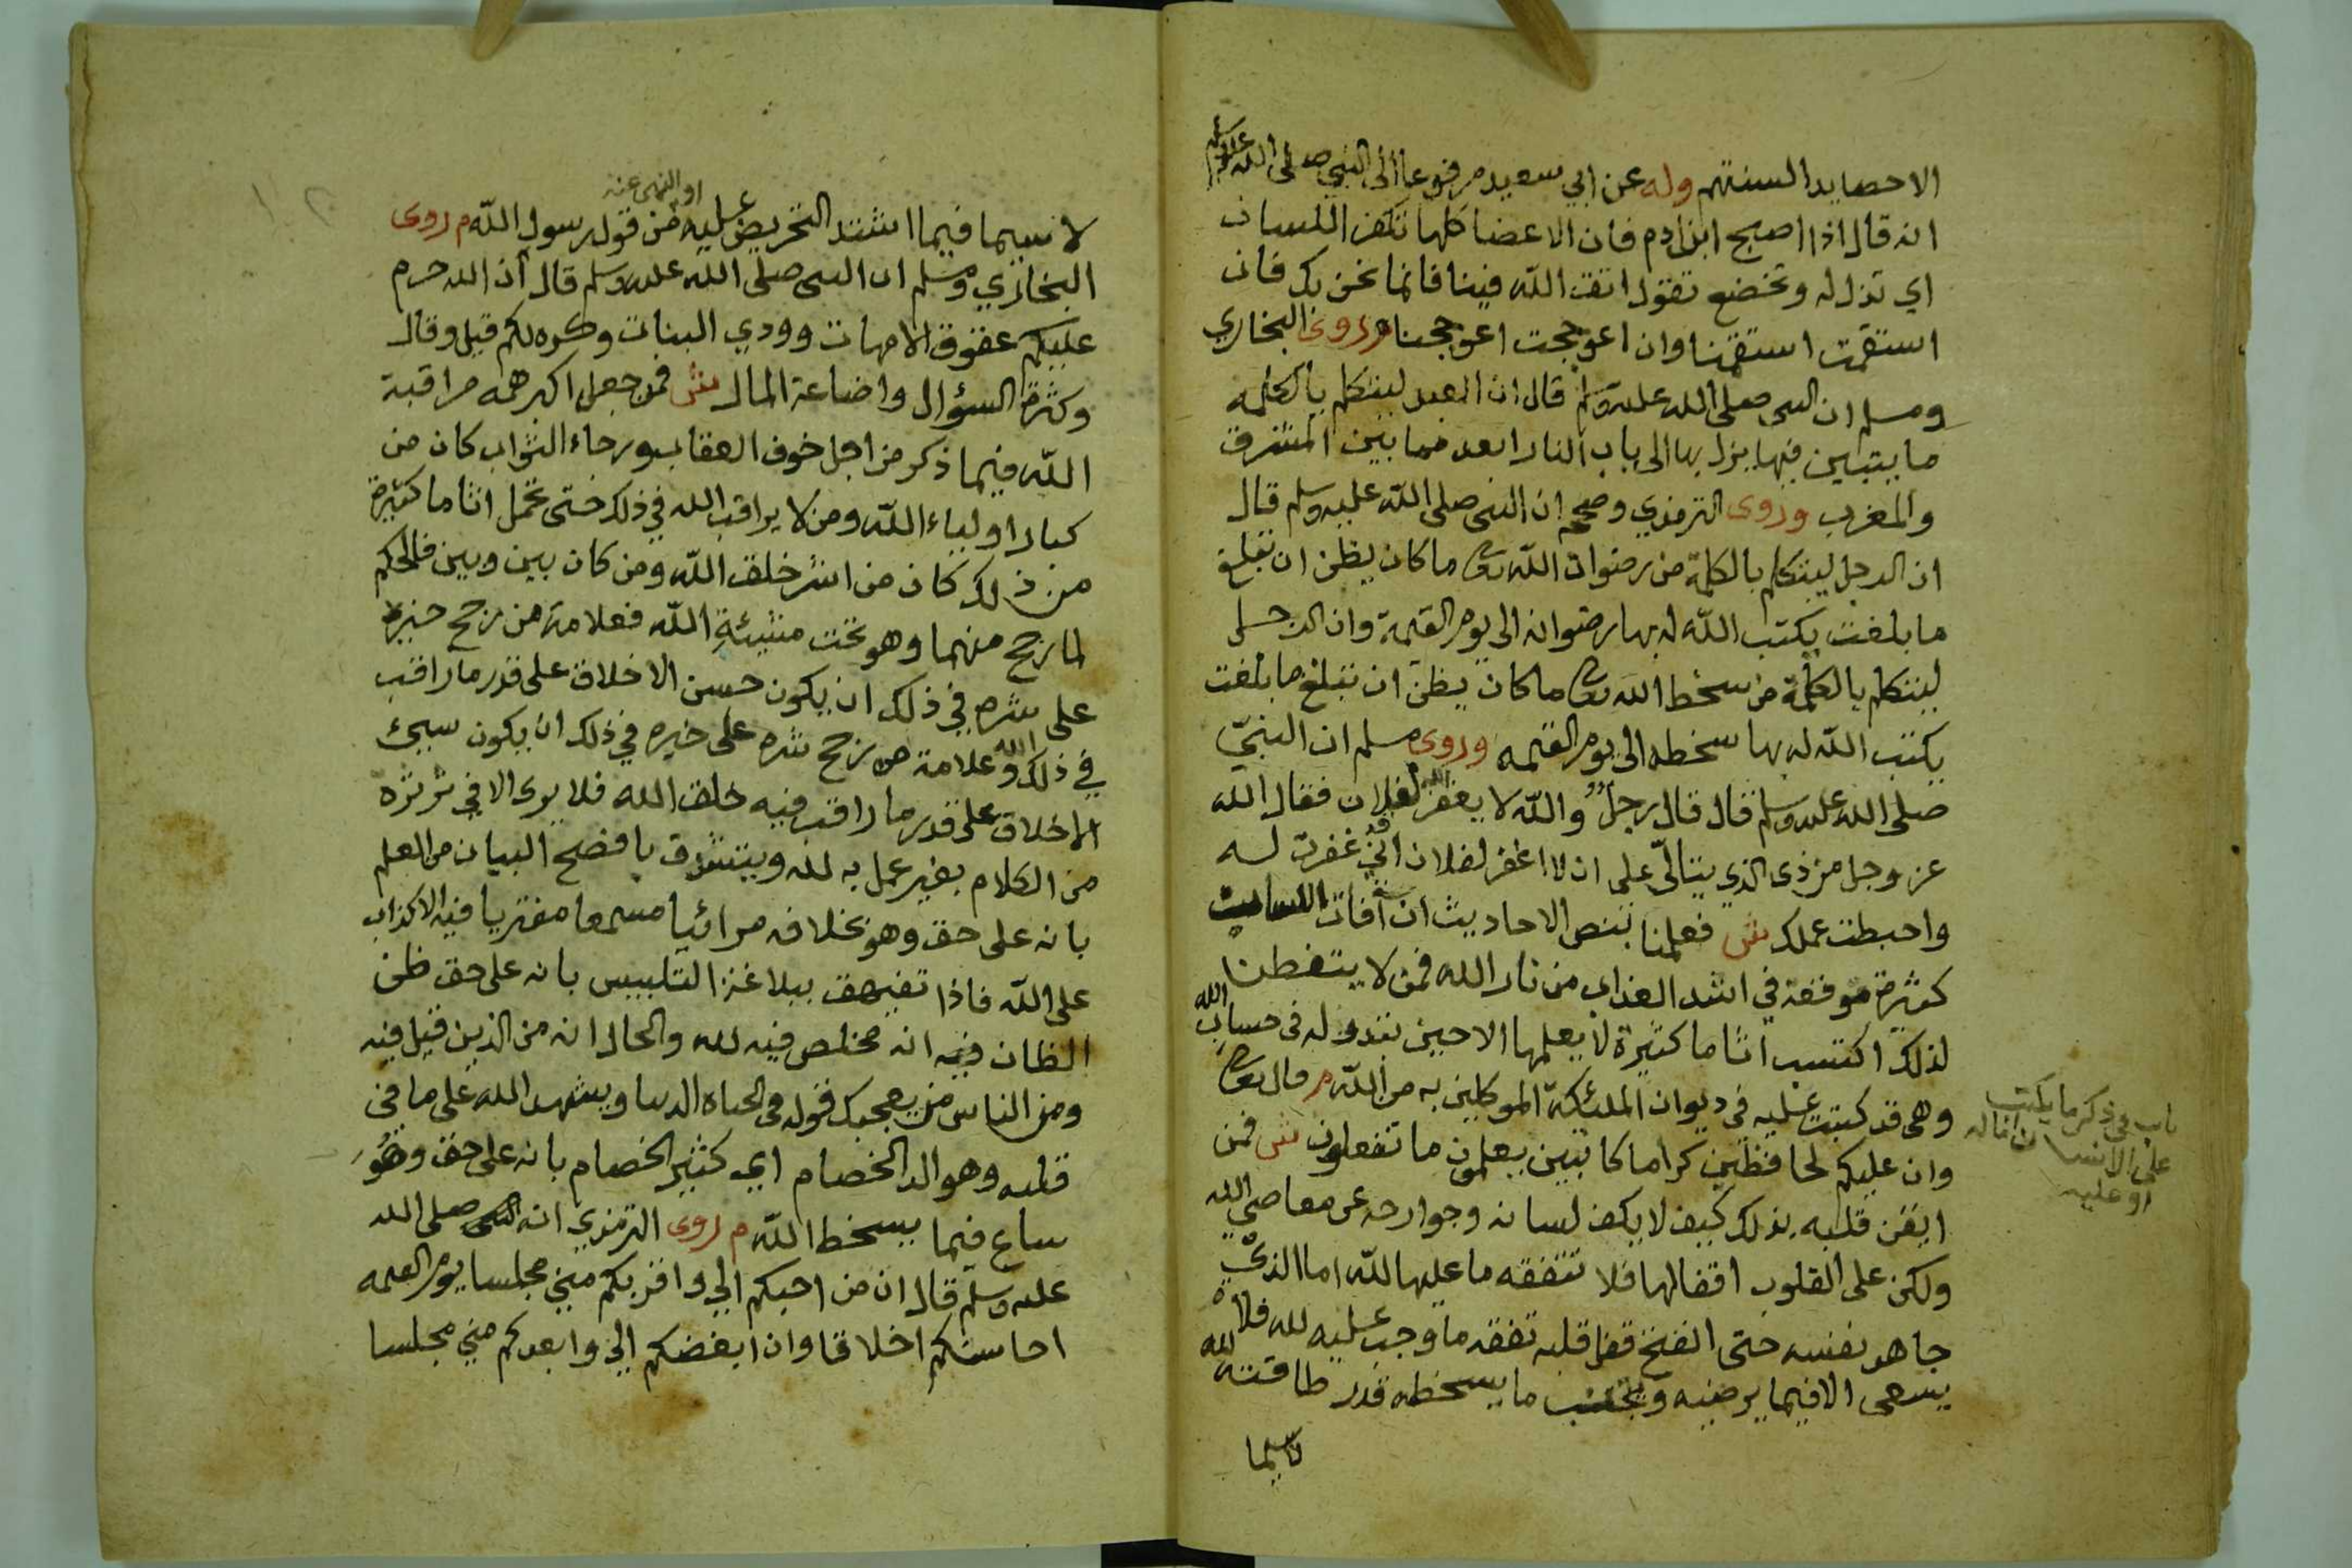 الا حصايد السنتهم وله عن ابي سعيد مرفوعا الى النبي صلى الله عليه وسلم
انه قال اذا اصبح ابن ادم فان الاعضا كلها تكفر اللسان
اي تذل له وتخضع تقول اتق الله فينا فانما نحن بك فان
استقمت استقمنا وان اعوججت اعوججنا وروى البخاري
ومسلم ان النبي صلى الله عليه وسلم قال ان العبد ليتكلم بالكلمه
ما يتبين فيها يزل بها الى باب النار ابعد مما بين المشرق
والمغرب وروى الترمذي وصححه ان النبي صلى الله عليه وسلم قال
ان الرجل ليتكلم بالكلمة من رضوان الله تعالى ما كان يظن ان تبلغ
ما بلغت يكتب الله له بها رضوانه الى يوم القيمة وان الرجل
ليتكلم بالكلمة من سخط الله تعالى ما كان يظن ان تبلغ ما بلغت
يكتب الله له بها سخطه الى يوم القيمه وروى مسلم ان النبي
صلى الله عليه وسلم قال قال رجل والله لا يغفر الله لفلان فقال الله
عز وجل من ذى الذي يتالى على ان لا اغفر لفلان اني قد غفرت له
واحبطت عملك ش فعلمنا بنص الاحاديث ان آفات اللسان
كثيرة موقعة في اشد العذاب من نار الله فمن لا يتفطن
لذلك اكتسب اثاما كثيرة لا يعلمها الا حين تبدو له فى حساب الله
وهى قد كتبت عليه فى ديوان الملئكة الموكلين به من الله م قال تعالى
وان عليكم لحافظين كراما كاتبين يعلمون ما تفعلون ش فمن
ايقن قلبه بذلك كيف لا يكف لسانه وجوارحه عن معاصي الله
ولكن على القلوب اقفالها فلا تتفقه ما عليها لله اما الذي
جاهد نفسه حتى انفتح قفل قلبه تفقه ما وجب عليه لله فلا
يسعى الا فيما يرضيه ويجتنب ما يسخطه قدر طاقته لله
لا سيما
باب في ذكر ما يكتب
على الانسان ما له
او عليه
او النهى عنه
لا سيما فيما اشتد التحريض عليه من قول رسول الله م روى
البخاري ومسلم ان النبى صلى الله عليه وسلم قال ان الله حرم
عليكم عقوق الامهات ووودي البنات وكره لكم قيل وقال
وكثرة السؤال واضاعة المال ش فمن جعل اكبر همه مراقبة
الله فيما ذكر من اجل خوف العقاب ورجاء الثواب كان من
كبار اولياء الله ومن لا يراقب الله في ذلك حتى تحمل اثاما كثيرة
من ذلك كان من اشر خلق الله ومن كان بين وبين فالحكم
لما رجح منهما وهو تحت مشيئة الله فعلامة من رجح خيره
على شره في ذلك ان يكون حسن الاخلاق على قدر ما راقب
في ذلك الله وعلامة من رجح شره على خيره في ذلك ان يكون سيئ
الاخلاق على قدر ما راقب فيه خلق الله فلا يرى الا في ثرثره
من الكلام بغير عمل به لله ويتشدق بافصح البيان من العلم
بانه على حق وهو بخلافه مرائيا مسمعا مفتريا فيه الاكذاب
على الله فاذا تفيهق ببلاغة التلبيس بانه على حق ظن
الظان فيه انه مخلص فيه لله والحال انه من الذين قيل فيه
ومن الناس من يعجبك قوله فى الحياه الدنيا ويشهد الله على ما في
قلبه وهو الد الخصام اي كثير الخصام بانه على حق وهو
ساع فيما يسخط الله م روى الترمذي ان النبى صلى الله
عليه وسلم قال ان من احبكم الي واقربكم مني مجلسا يوم القيمه
احاسنكم اخلاقا وان ابغضكم الي وابعدكم مني مجلسا